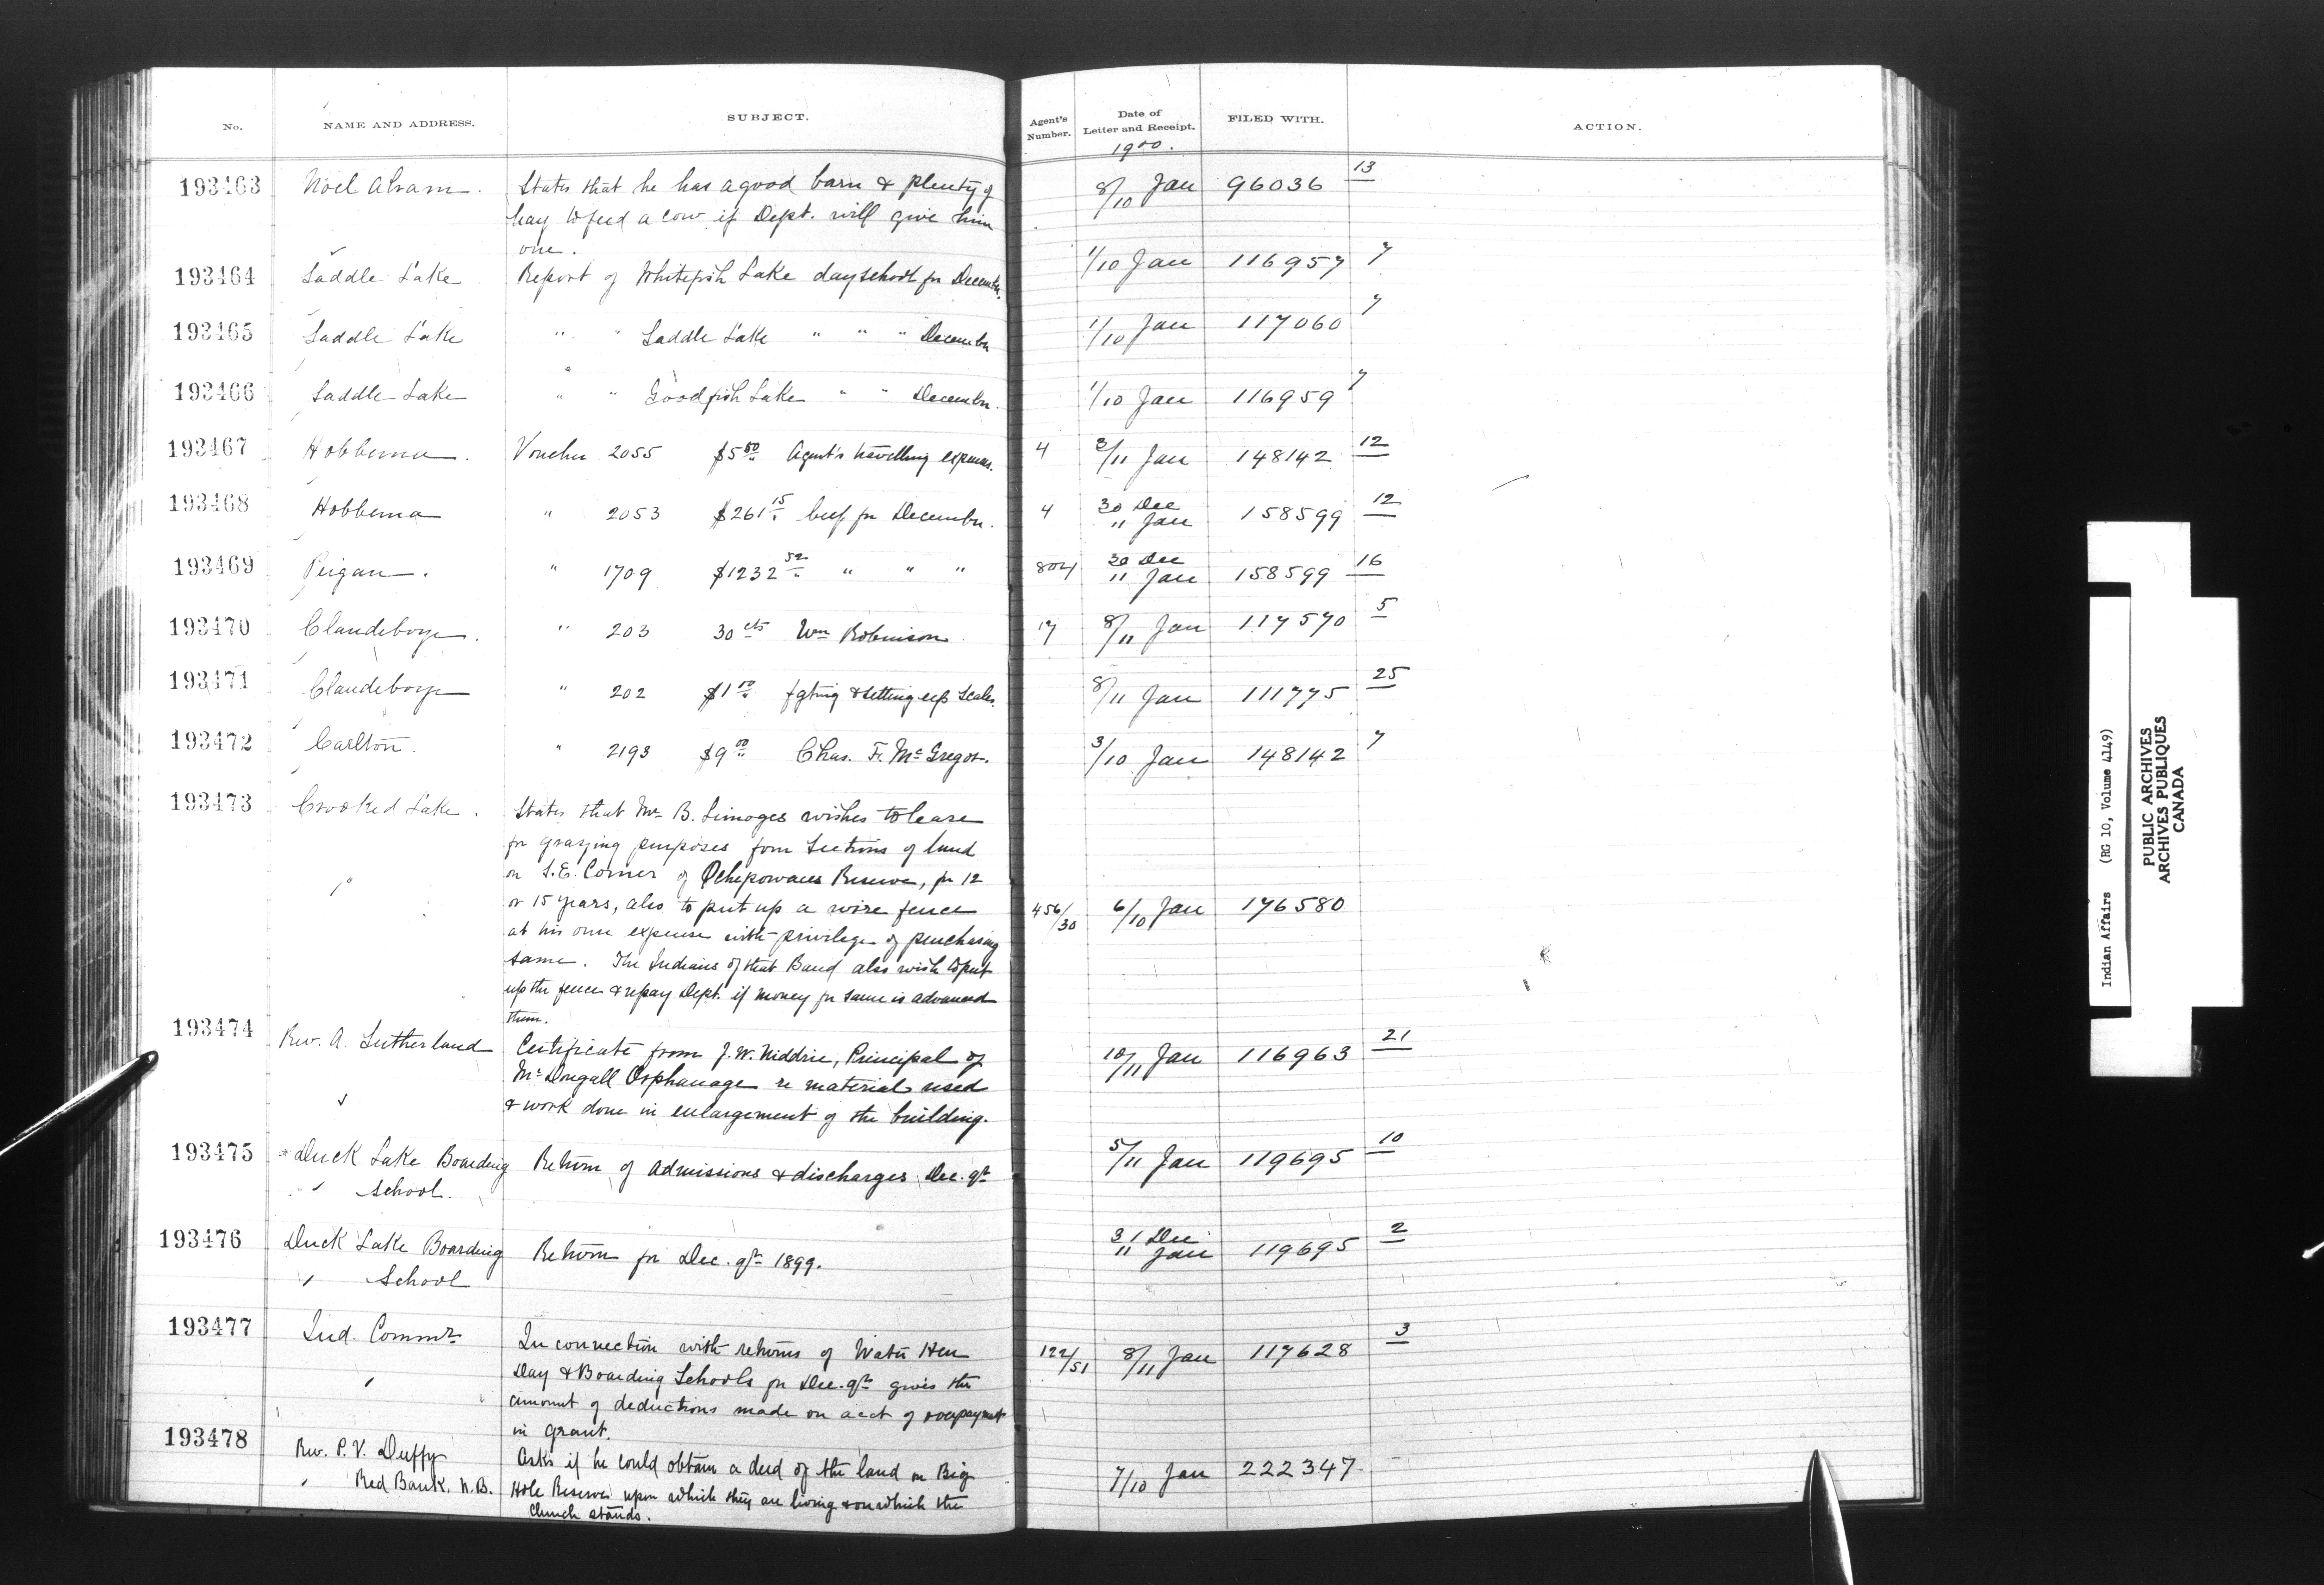 No. NAME AND ADDRESS. SUBJECT. Agent's Number. Date of Letter and Receipt. FILED WITH. ACTION.
1900.
193463 Noel Abram. States that he has a good barn & plenty of 8/10 Jan 96036 13
hay to feed a cow if Dept. will give him
one.
193464 Saddle Lake Report of Whitefish Lake day school for December. 1/10 Jan 116957 7
193465 Saddle Lake " " Saddle Lake " " " December 1/10 Jan 117060 7
193466 Saddle Lake " " Goodfish Lake " " December. 1/10 Jan 116959 7
193467 Hobbema. Voucher 2055 $5 50 Agent's travelling expenses. 4 3/11 Jan 148142 12
193468 Hobbema " 2053 $261 15 beef for December. 4 30 Dec 11 Jan 158599 12
193469 Peigan. " 1709 $1232 52 " " " 804 30 Dec 11 Jan 158599 16
193470 Clandeboye. " 203 30 cts Wm Robinson. 17 8/11 Jan 117570 5
193471 Clandeboye " 202 $1 00 & setting up scales. 8/11 Jan 111775 25
193472 Carlton. " 2193 $9 00 Chas. F. McGregor. 3/10 Jan 148142 7
193473 Crooked Lake. States that Mr B. Limoges wishes to lease
for grazing purposes four Sections of land
on S.E. Corner of Ochipowaces Reserve, for 12
or 15 years, also to put up a wire fence 456/30 6/10 Jan 176580
at his own expense with privilege of purchasing
same. The Indians of that Band also wish to put
up the fence & repay Dept. if money for same is advanced
them.
193474 Rev. A. Sutherland Certificate from J. W. Niddrie, Principal of 10/11 Jan 116963 21
McDougall Orphanage re material used
& work done in enlargement of the building.
193475 Duck Lake Boarding Return of admissions & discharges Dec. qr 5/11 Jan 119695 10
School.
193476 Duck Lake Boarding Return for Dec. qr 1899. 31 Dec 11 Jan 119695 2
School
193477 Ind. Commr In connection with returns of Water Hen 122/51 8/11 Jan 117628 3
Day & Boarding Schools for Dec. qr gives the
amount of deductions made on acct of overpayment
in grant.
193478 Rev. P. V. Duffy Asks if he could obtain a deed of the land on Big 7/10 Jan 222347
Red Bank. N.B. Hole Reserve upon which they are living & on which the
Church stands.
Indian Affairs (RG 10, Volume 4149)
PUBLIC ARCHIVES
ARCHIVES PUBLIQUES
CANADA